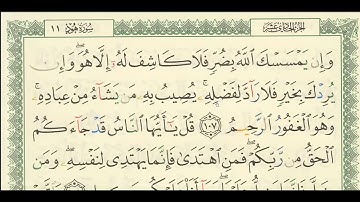 الجزء الحادي عشر
سورة هود ١١
وَإِن يَمْسَسْكَ ٱللَّهُ بِضُرٍّ فَلَا كَاشِفَ لَهُۥٓ إِلَّا هُوَ ۖ وَإِن
يُرِدْكَ بِخَيْرٍ فَلَا رَآدَّ لِفَضْلِهِۦ ۚ يُصِيبُ بِهِۦ مَن يَشَآءُ مِنْ عِبَادِهِۦ ۚ
وَهُوَ ٱلْغَفُورُ ٱلرَّحِيمُ ١٠٧ قُلْ يَٰٓأَيُّهَا ٱلنَّاسُ قَدْ جَآءَكُمُ
ٱلْحَقُّ مِن رَّبِّكُمْ ۖ فَمَنِ ٱهْتَدَىٰ فَإِنَّمَا يَهْتَدِى لِنَفْسِهِۦ ۖ وَمَن